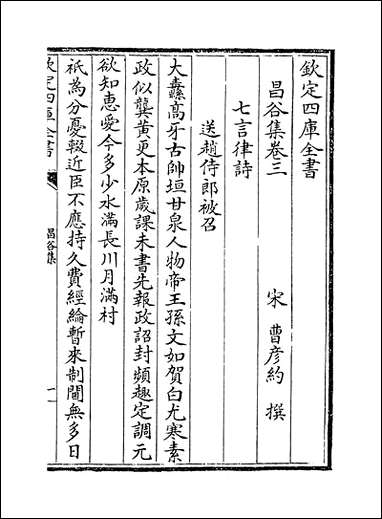 欽定四庫全書
昌谷集卷三
宋 曹彦約 撰
七言律詩
送趙侍郎被召
大纛高牙古帥垣甘泉人物帝王孫文如賀白尤寒素
政似龔黃更本原歲課未書先報政詔封頻趣定調元
欲知惠愛今多少水滿長川月滿村
祇為分憂輟近臣不應持久費經綸暫來制閫無多日
欽定四庫全書
昌谷集
一